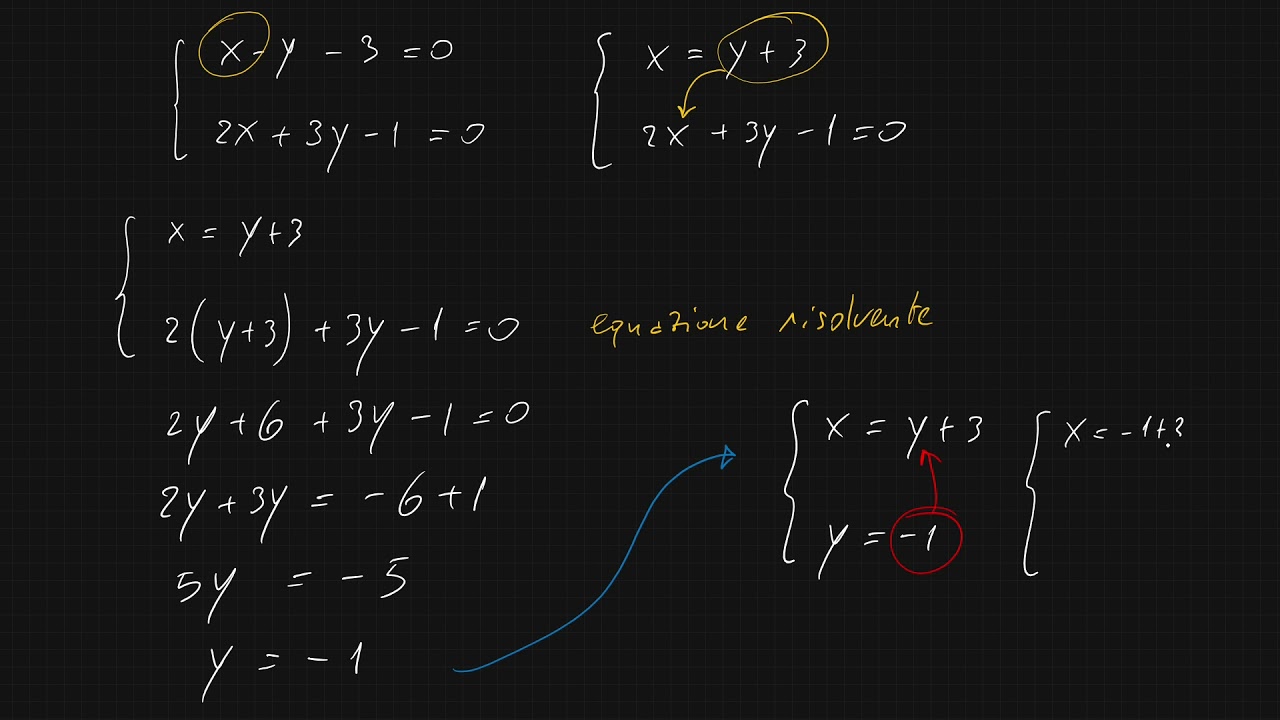 x - y - 3 = 0
2x + 3y - 1 = 0
x = y + 3
2x + 3y - 1 = 0
x = y + 3
2(y+3) + 3y - 1 = 0 equazione risolvente
2y + 6 + 3y - 1 = 0
2y + 3y = -6 + 1
5y = -5
y = -1
x = y + 3
y = -1
x = -1 + 3